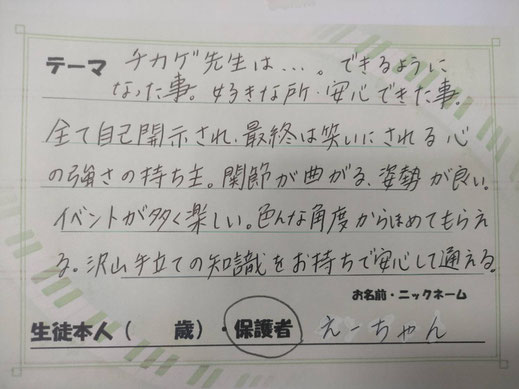 テーマ チカゲ先生は…。できるように
なった事。好きな所・安心できた事。
全て自己開示され、最終は笑いにされる心
の強さの持ち主。関節が曲がる、姿勢が良い。
イベントが多く楽しい。色んな角度からほめてもらえ
る。沢山手立ての知識をお持ちで安心して通える。
お名前・ニックネーム
生徒本人(　　歳)・保護者 えーちゃん